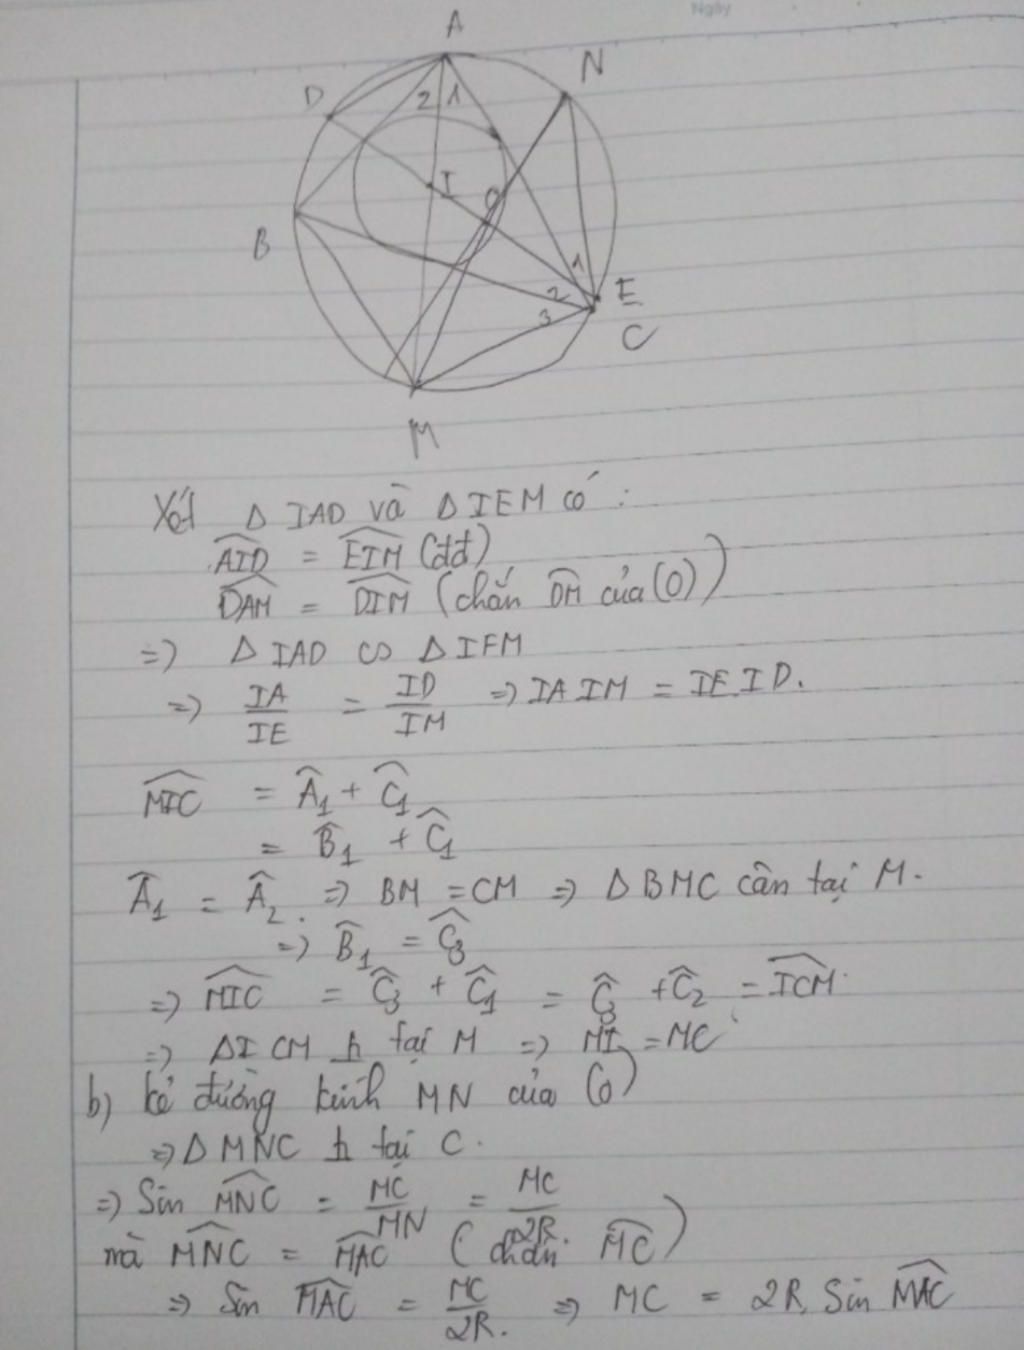 Ngày
A
N
D
2 1
I
O
B
1
2
E
3
C
M
Xét Δ IAD và Δ IEM có :
\widehat{AID} = \widehat{EIM} (đđ)
\widehat{DAM} = \widehat{DIM} (chắn \widehat{DM} của (O))
=> Δ IAD ∽ Δ IFM
=> \frac{IA}{IE} = \frac{ID}{IM} => IA.IM = IE.ID.
\widehat{MIC} = \widehat{A}_1 + \widehat{C}_1
= \widehat{B}_1 + \widehat{C}_1
\widehat{A}_1 = \widehat{A}_2. => BM = CM => Δ BMC cân tại M.
=> \widehat{B}_1 = \widehat{C}_3
=> \widehat{MIC} = \widehat{C}_3 + \widehat{C}_1 = \widehat{C}_3 + \widehat{C}_2 = \widehat{ICM}.
=> ΔICM tại M => MI = MC
b) kẻ đường kính MN của (O)
=> Δ MNC tại C.
=> Sin \widehat{MNC} = \frac{MC}{MN} = \frac{MC}{2R}.
mà \widehat{MNC} = \widehat{MAC} (chắn \widehat{MC})
=> Sin \widehat{MAC} = \frac{MC}{2R}. => MC = 2R. Sin \widehat{MAC}